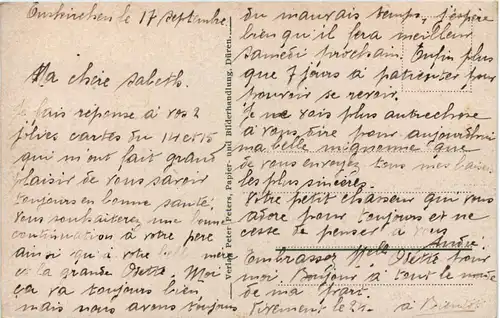 Euskirchen le 17 septembre
Ma chère Labeth.
Je fais réponse à vos 2
jolies cartes du 14 et 15
qui m'ont fait grand
plaisir de vous savoir
toujours en bonne santé,
vous souhaiterez une bonne
continuation à votre père
ainsi qu'à votre belle mère
et la grande Odette. Moi
ça va toujours bien
mais nous avons toujours
Verlag Peter Peters, Papier- und Bilderhandlung, Düren.
du mauvais temps, j'espère
bien qu'il fera meilleur
samedi prochain. Enfin plus
que 7 jours à patienter pour
pouvoir se revoir.
Je ne vais plus autre chose
à vous dire pour aujourd'hui
ma belle mignonne que
de vous envoyer tous mes baisers
les plus sincères.
Votre petit chasseur qui vous
adore pour toujours et ne
cesse de penser à vous
André
Embrassez Melle Odette pour
moi. Bonjour à tout le monde
de ma part.
Vivement le 24. à Bientôt